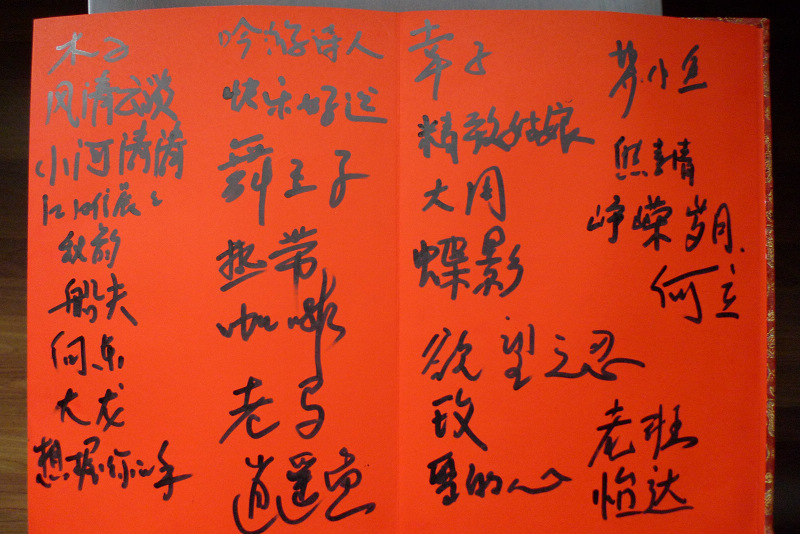 木子
风清云淡
小河清清
秋韵
船夫
何东
大龙
想握你的手
吟游诗人
快乐好运
舞王子
热带
咖啡
老马
逍遥鱼
幸子
精致姑娘
大周
蝶影
欲望之忍
玫
雪的心
苏小鱼
熊青
峥嵘岁月
何立
老班
怡达